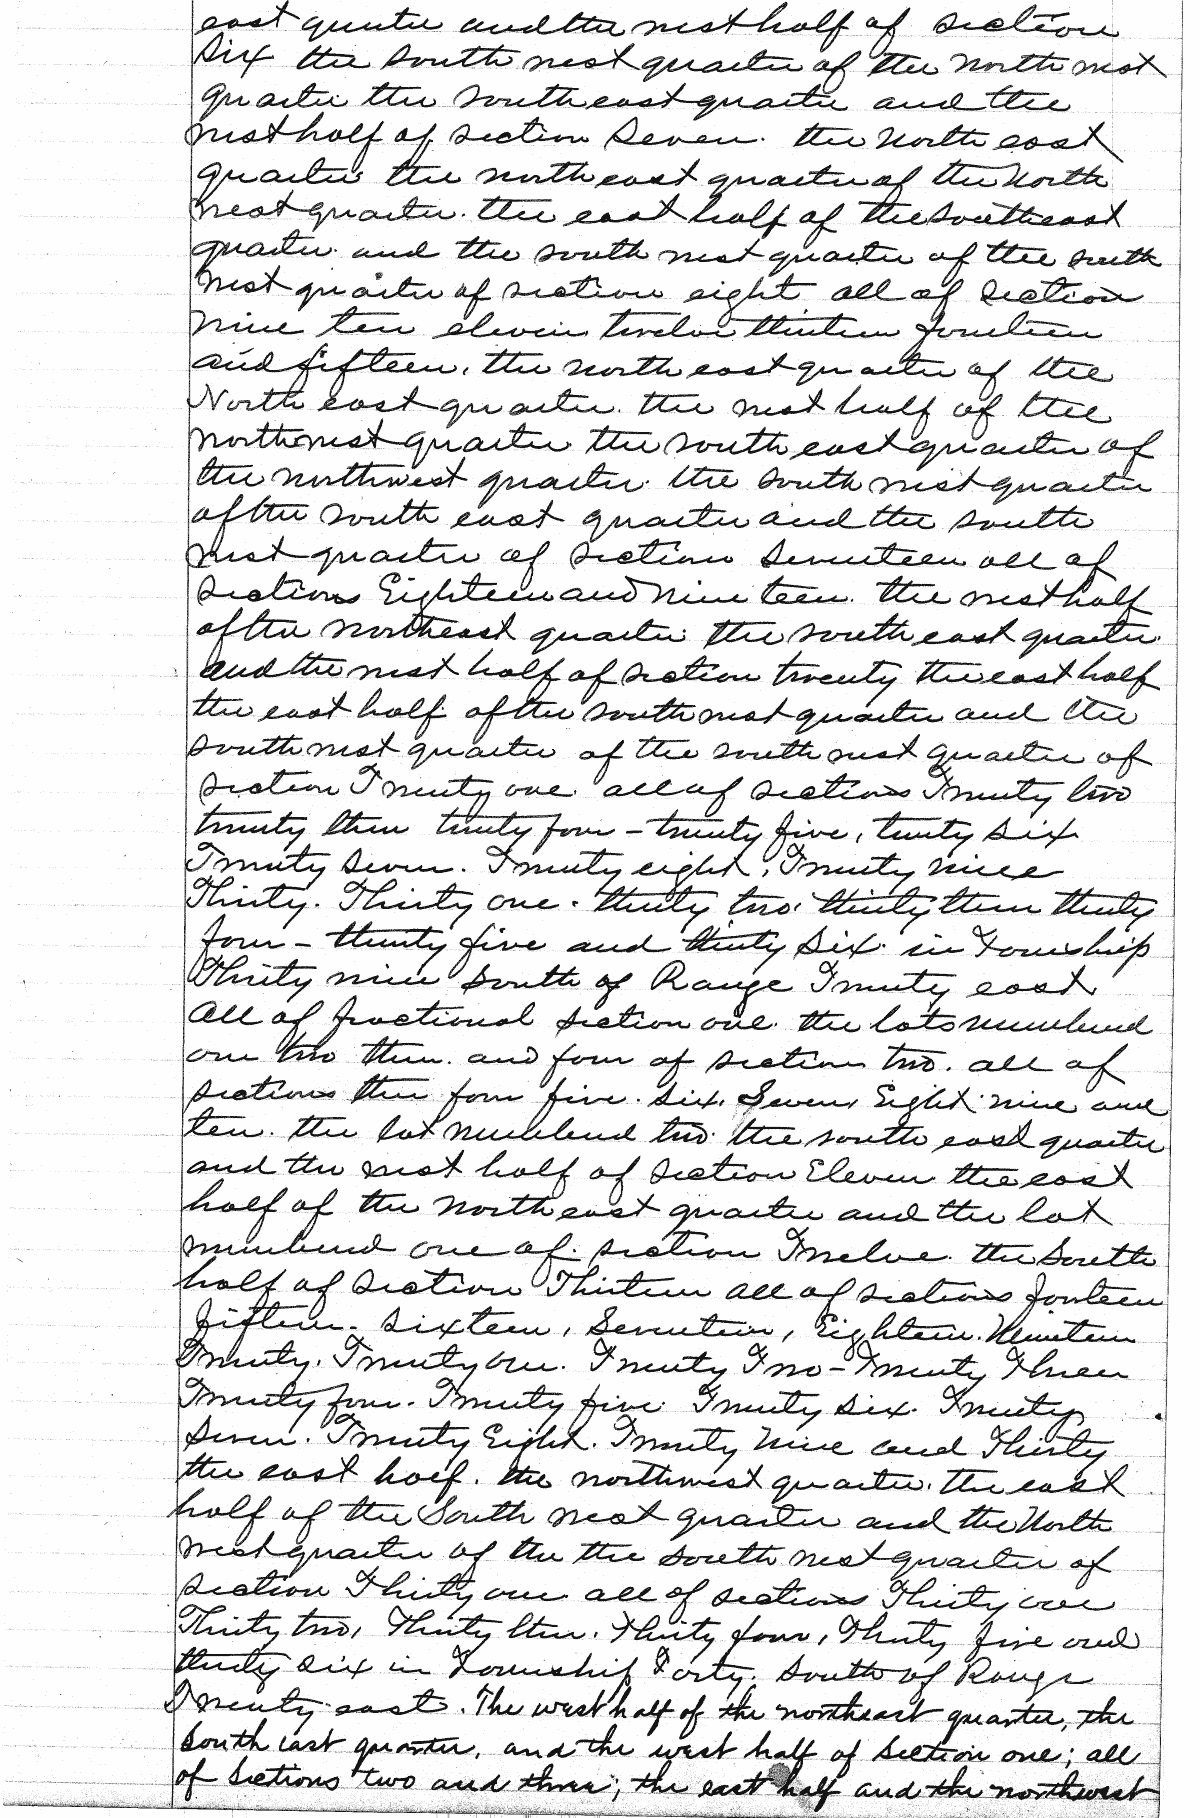 east quarter and the west half of section
Six the south west quarter of the North west
quarter the south east quarter and the
west half of section Seven. the North east
quarter the north east quarter of the North
west quarter. the east half of the southeast
quarter and the south west quarter of the south
west quarter of section eight all of section
nine ten eleven twelve thirteen fourteen
and fifteen, the north east quarter of the
North east quarter. the west half of the
northwest quarter the south east quarter of
the northwest quarter. the south west quarter
of the south east quarter and the south
west quarter of section Seventeen all of
sections Eighteen and Nine teen. the west half
of the northeast quarter the south east quarter
and the west half of section twenty the east half
the east half of the south west quarter and the
south west quarter of the south west quarter of
section Twenty one all of sections Twenty two
twenty three twenty four - twenty five, twenty six
Twenty Seven. Twenty eight, Twenty nine
Thirty. Thirty one. thirty two, thirty three thirty
four - thirty five and thirty six in Township
Thirty nine South of Range Twenty east.
All of fractional section one. the lots numbered
one two three. and four of section two. all of
sections three four five. six. Seven, Eight nine and
ten. the lot numbered two. the south east quarter
and the west half of section Eleven the east
half of the North east quarter and the lot
numbered one of section Twelve. the South
half of section Thirteen all of sections fourteen
fifteen. Sixteen, Seventeen, Eighteen. Nineteen
Twenty. Twenty one. Twenty Two - Twenty Three
Twenty four. Twenty five Twenty six. Twenty
Seven. Twenty Eight. Twenty Nine and Thirty
the east half. the northwest quarter. the east
half of the South west quarter and the North
west quarter of the the south west quarter of
section Thirty one all of sections Thirty one
Thirty two, Thirty three. Thirty four, Thirty five and
thirty six in Township Forty. South of Range
Twenty east. The west half of the northeast quarter, the
south east quarter, and the west half of Section one; all
of Sections two and three; the east half and the northwest